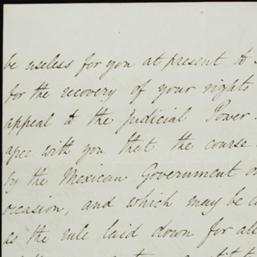 be useless for you at present to
for the recovery of your rights
appeal to the Judicial Power
agree with you that the course
by the Mexican Government on
occasion, and which may be
as the rule laid down for